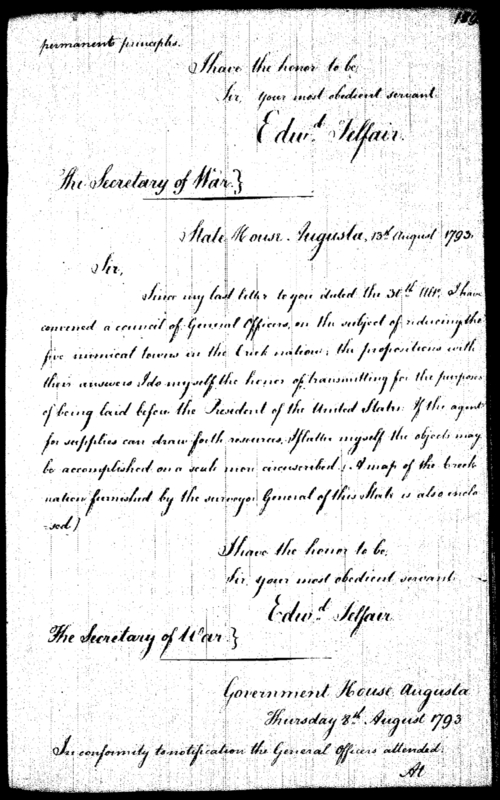 permanent principles.
I have the honor to be,
Sir, your most obedient servant.
Edwd. Telfair.
The Secretary of War.}
State House. Augusta, 13th August 1793.
Sir,
Since my last letter to you dated the 30th Ult. I have
convened a council of General Officers, on the subject of reducing the
five inimical towns in the Creek nation; the propositions with
their answers I do myself the honor of transmitting for the purpose
of being laid before the President of the United States. If the agent
for supplies can draw forth resources, I flatter myself the objects may
be accomplished on a scale more circuscribed. (A map of the Creek
nation furnished by the surveyor General of this State is also inclo
-sed.)
I have the honor to be,
Sir, your most obedient servant
Edwd. Telfair.
The Secretary of War.}
Government House Augusta
Thursday 8th August 1793
In conformity to notification the General Officers attended.
At